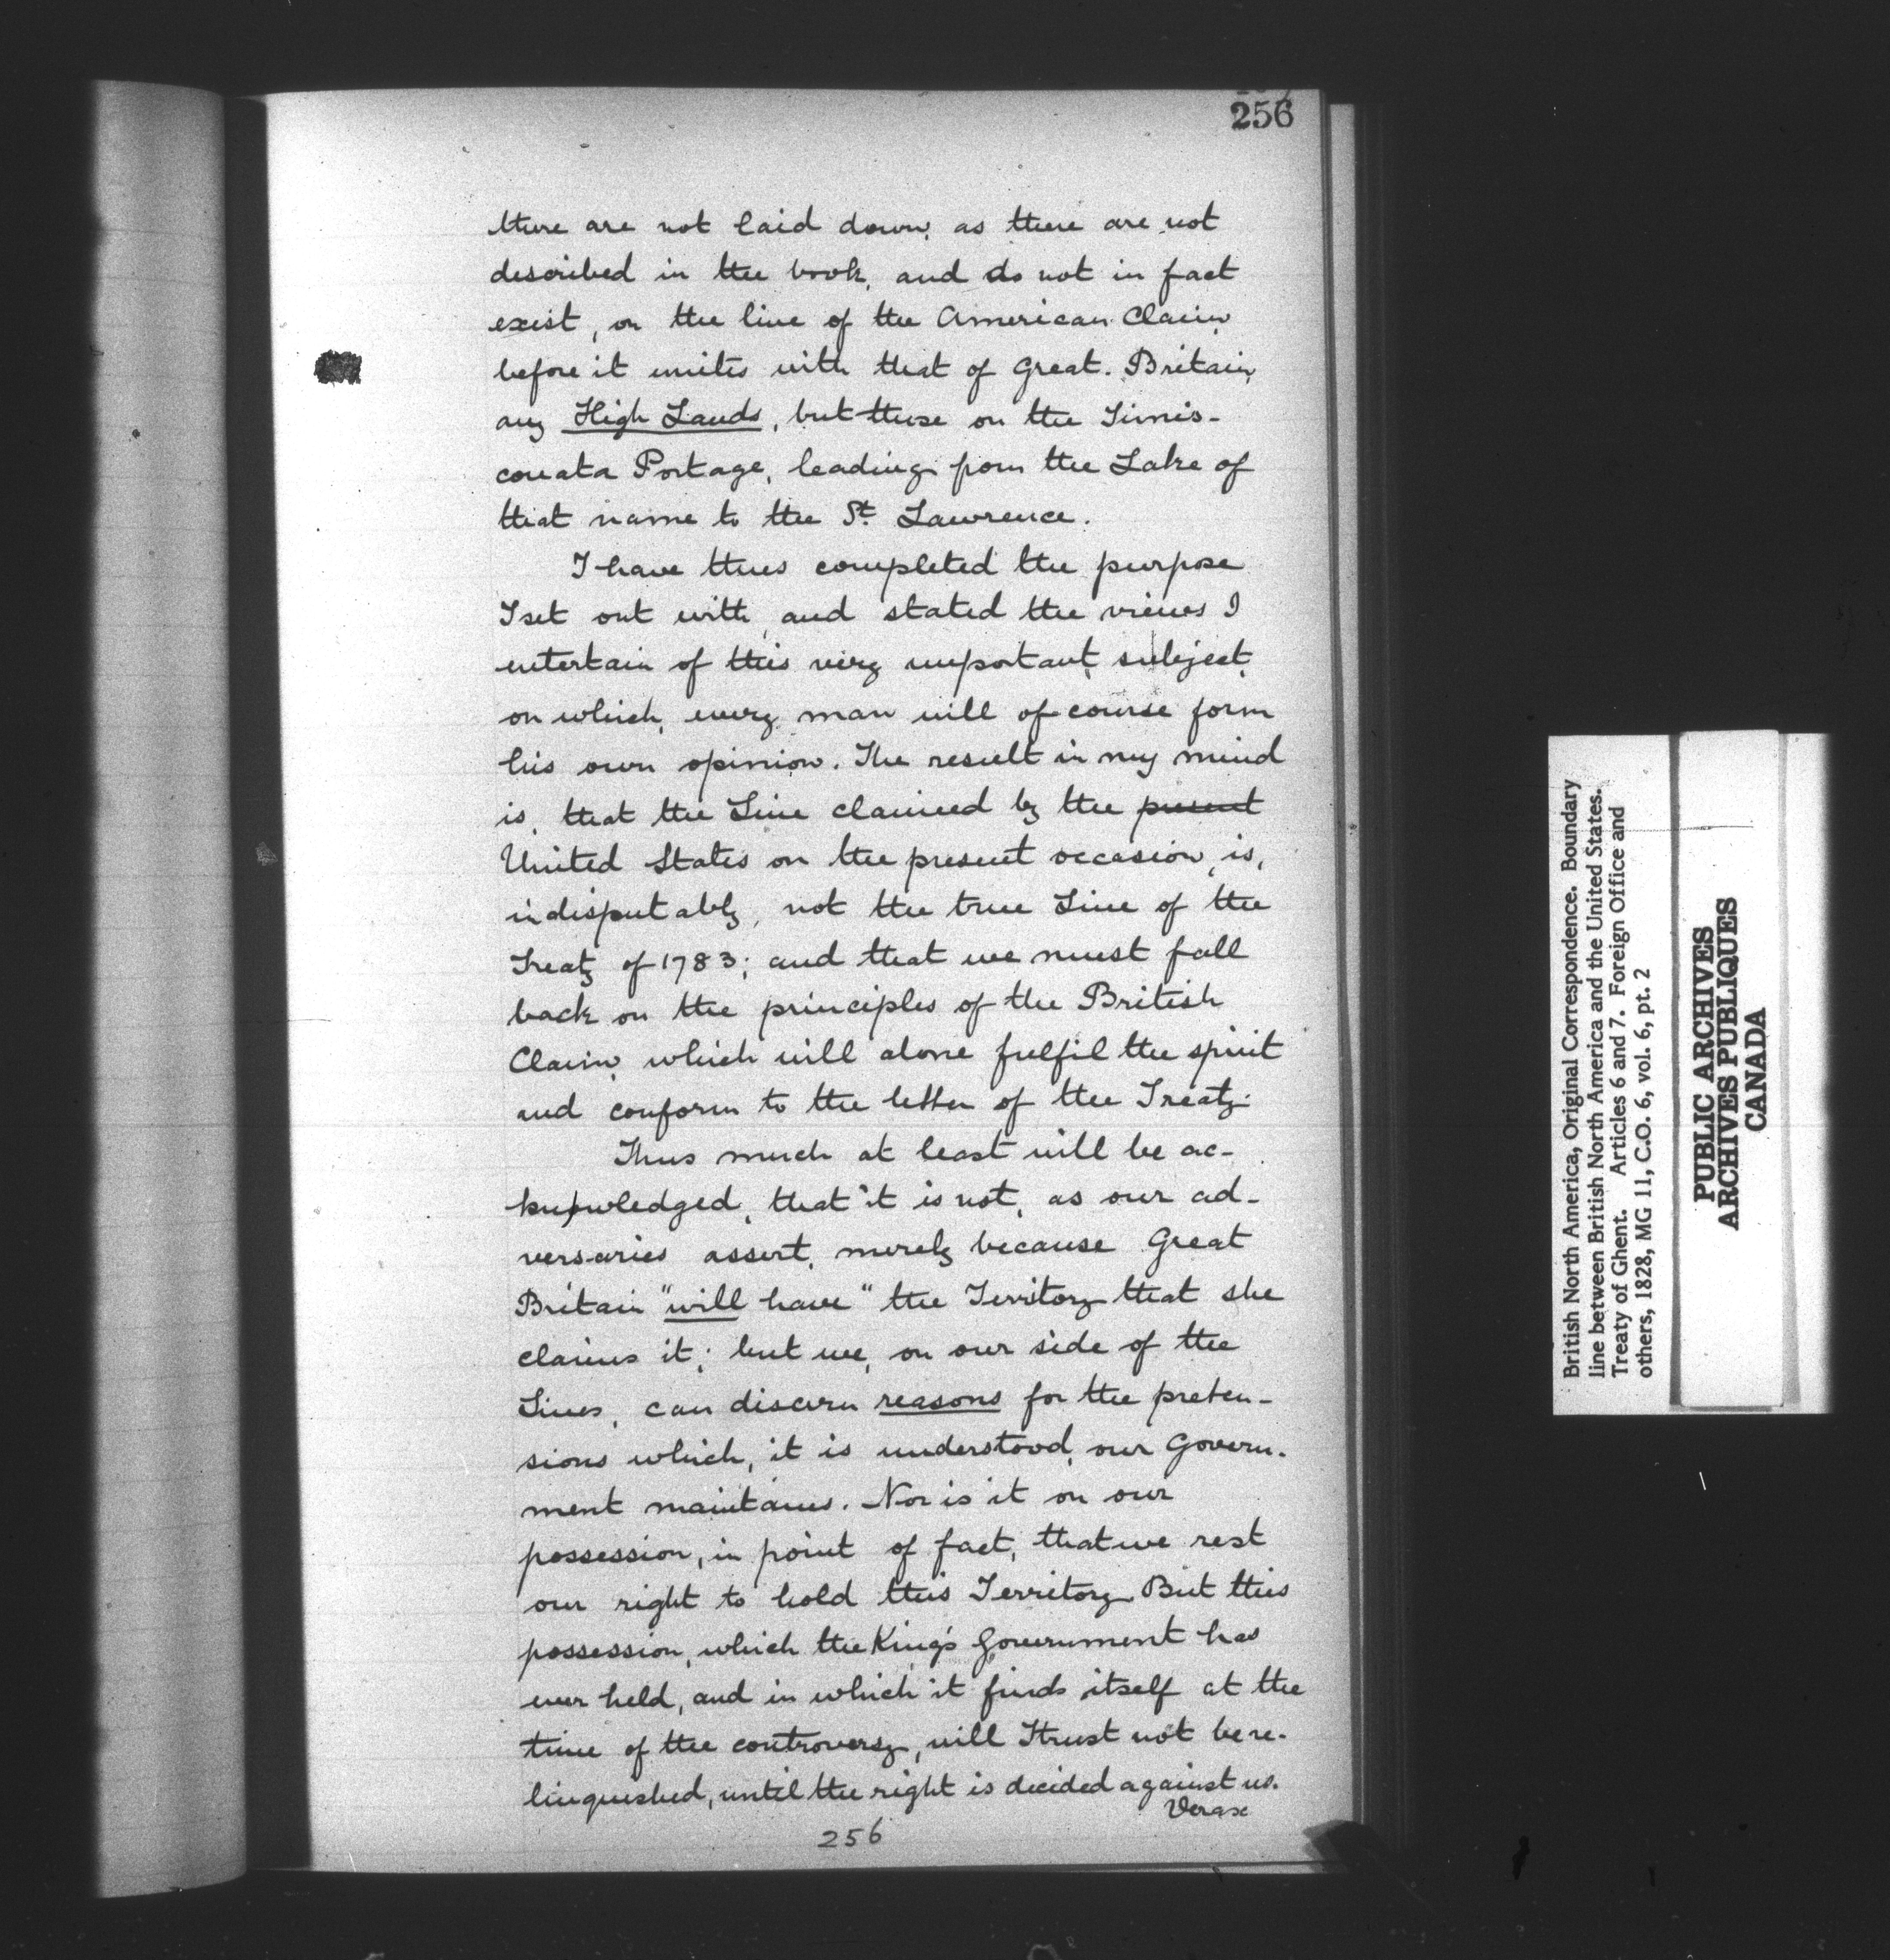 256
there are not laid down, as there are not
described in the book, and do not in fact
exist, on the line of the American Claim,
before it unites with that of Great Britain,
any High Lands, but those on the Timis-
couata Portage, leading from the Lake of
that name to the St. Lawrence.
I have thus completed the purpose
I set out with, and stated the views I
entertain of this very important subject,
on which, every man will of course form
his own opinion. The result in my mind
is, that the Line claimed by the present
United States on the present occasion, is,
indisputably, not the true Line of the
Treaty of 1783; and that we must fall
back on the principles of the British
Claim, which will alone fulfil the spirit
and conform to the letter of the Treaty.
Thus much at least will be ac-
knowledged, that it is not, as our ad-
versaries assert, merely because Great
Britain "will have" the Territory that she
claims it; but we, on our side of the
Lines, can discern reasons for the preten-
sions which, it is understood, our Govern-
ment maintains. Nor is it on our
possession, in point of fact, that we rest
our right to hold this Territory. But this
possession, which the King's Government has
ever held, and in which it finds itself at the
time of the controversy, will I trust not be re-
linquished, until the right is decided against us.
Verax
256
British North America, Original Correspondence. Boundary
line between British North America and the United States.
Treaty of Ghent. Articles 6 and 7. Foreign Office and
others, 1828, MG 11, C.O. 6, vol. 6, pt. 2
PUBLIC ARCHIVES
ARCHIVES PUBLIQUES
CANADA